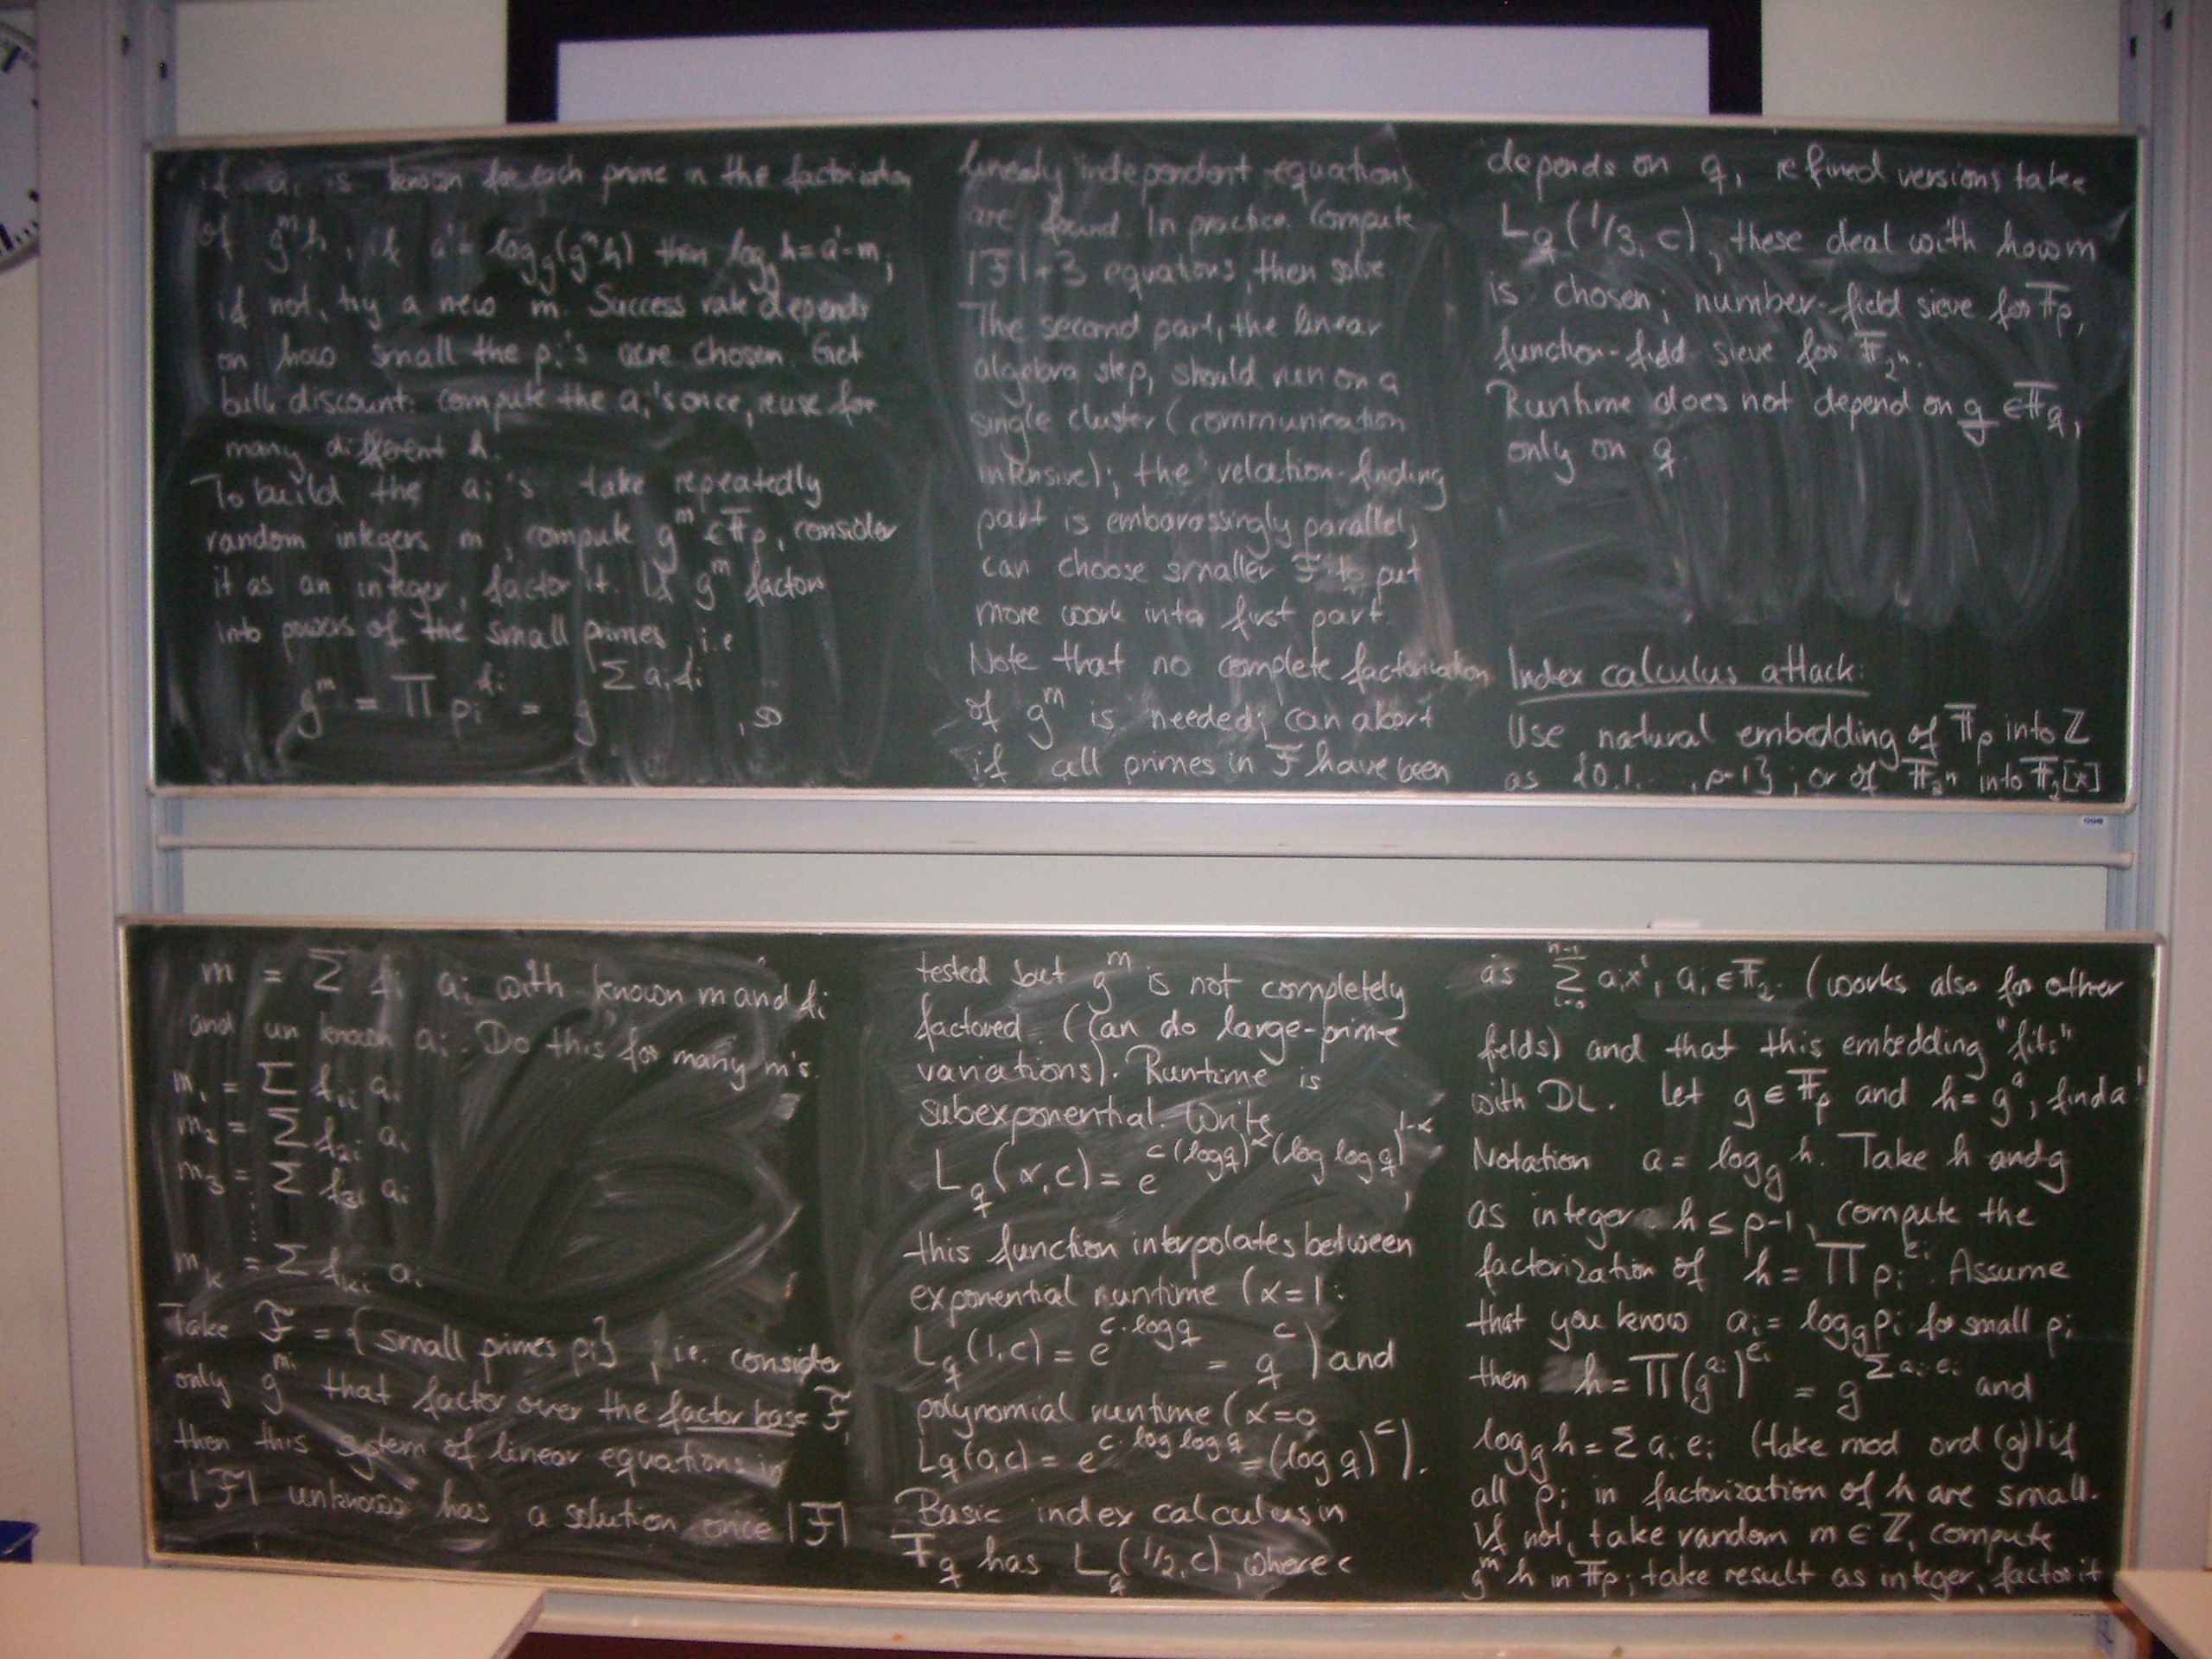 if a_i is known for each prime in the factorization
of g^m h, if a' = log_g(g^m h) then log_g h = a'-m;
if not, try a new m. Success rate depends
on how small the p_i's were chosen. Get
bulk discount: compute the a_i's once, reuse for
many different h.
To build the a_i's take repeatedly
random integers m, compute g^m ∈ 𝔽_p, consider
it as an integer, factor it. If g^m factors
into powers of the small primes, i.e
g^m = ∏ p_i^{f_i} = g^{Σ a_i f_i}, so
m = Σ f_i a_i with known m and f_i
and unknown a_i. Do this for many m's.
m_1 = Σ f_{1i} a_i
m_2 = Σ f_{2i} a_i
m_3 = Σ f_{3i} a_i
⋮
m_k = Σ f_{ki} a_i
Take F = {small primes p_i}, i.e. consider
only g^{m_i} that factor over the factor base F,
then this system of linear equations in
|F| unknows has a solution once |F|
linearly independent equations
are found. In practice compute
|F|+3 equations, then solve
The second part, the linear
algebra step, should run on a
single cluster (communication
intensive); the relation-finding
part is embarassingly parallel,
can choose smaller F to put
more work into first part.
Note that no complete factorization
of g^m is needed; can abort
if all primes in F have been
tested but g^m is not completely
factored. (Can do large-prime
variations). Runtime is
subexponential. Write
L_q(α,c) = e^{c (log q)^α (log log q)^{1-α}},
this function interpolates between
exponential runtime (α=1:
L_q(1,c) = e^{c·log q} = q^c) and
polynomial runtime (α=0
L_q(0,c) = e^{c·log log q} = (log q)^c).
Basic index calculus in
𝔽_q has L_q(1/2,c), where c
depends on q, refined versions take
L_q(1/3,c), these deal with how m
is chosen; number-field sieve for 𝔽_p,
function-field sieve for 𝔽_{2^n}.
Runtime does not depend on g ∈ 𝔽_q,
only on q.
Index calculus attack:
Use natural embedding of 𝔽_p into ℤ
as {0,1,...,p-1}; or of 𝔽_{2^n} into 𝔽_2[x]
as Σ_{i=0}^{n-1} a_i x^i, a_i ∈ 𝔽_2. (works also for other
fields) and that this embedding "fits"
with DL. Let g ∈ 𝔽_p and h = g^a, find a!
Notation a = log_g h. Take h and g
as integer h ≤ p-1, compute the
factorization of h = ∏ p_i^{e_i}. Assume
that you know a_i = log_g p_i for small p_i
then h = ∏(g^{a_i})^{e_i} = g^{Σ a_i e_i} and
log_g h = Σ a_i e_i (take mod ord(g)) if
all p_i in factorization of h are small.
If not, take random m ∈ ℤ, compute
g^m h in 𝔽_p; take result as integer, factor it